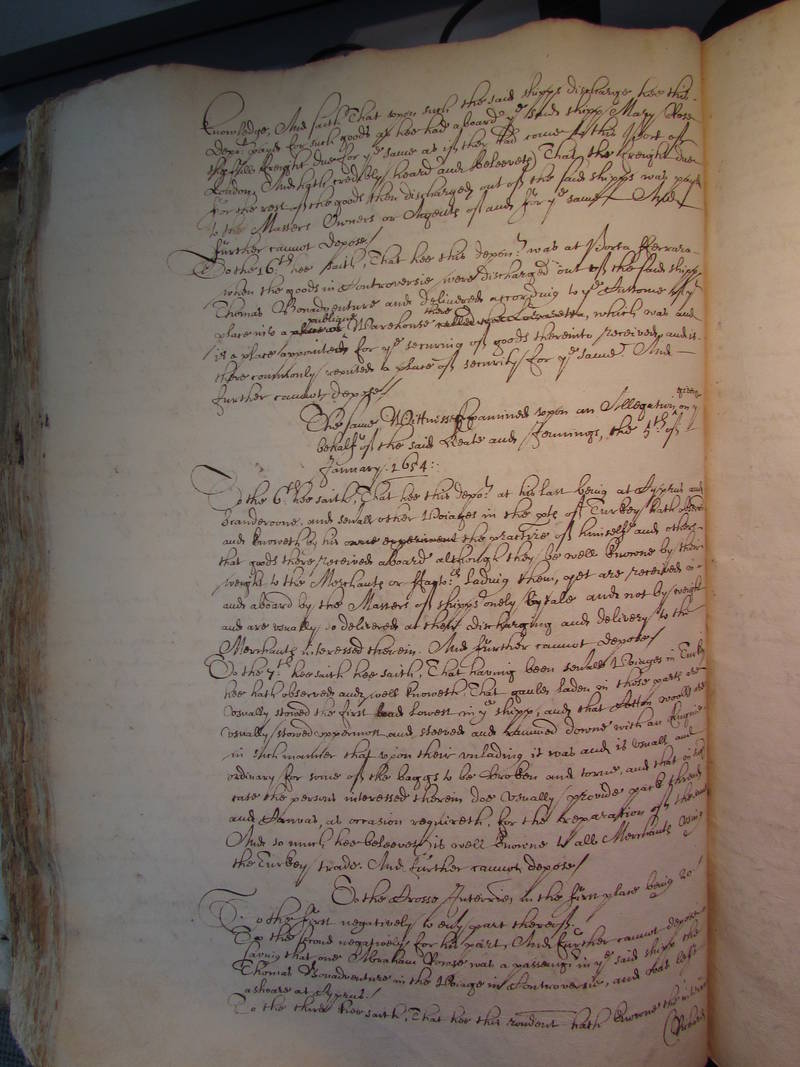 knowledge, And saith That upon such the said shipps discharge hee this
depot. payd for such goods as hee had aboard ye said shipp Mary Rose
the full freight due for ye same as if they had come to this Port of
London, And hath credibly heard and beleeveth That the freight due
for the rest of the goods then discharged out of the said shipps was payd
to the Masters Owners or Agents of and for ye same And
further cannot depose./
To the 16th hee saith, That hee this depont. was at Porto Ferrara
when the goods in Controversie were discharged out of the said shipp
Thomas Bonadventure and delivered according to ye Custome of ye
place into a publique Warehouse there which was and
is a place appointed for ye securing of goods thereinto received, and is
there commonly reputed a place of security for ye same. And
further cannot depose./
The same Wittnesse Examined upon an Allegation given on ye
behalfe of the said Keate and Jennings, the 5th of
January. 1654:.
To the 6th hee saith, That hee this depot. at his last being at Cyprus and
Scanderoone, and severall other Voiages in the pts of Turkey hath observed
and knoweth by his owne experiment the practise of himselfe and others
that goods there received aboard although they be well knowne by their
weight to the Merchants or Factors lading them, yet are received
and aboard by the Masters of shipps onely by tale and not by weight
and are usually so delivered at their discharging and delivery to the
Merchants interessed therein. And further cannot depose/
To the 7th. hee saith hee saith, That having been severall Voiages in Turkey
hee hath observed and well knoweth, That gaules laden in those parts are
usually stowed the first and lowest in ye shipp, and that Cotton woolls are
usually stowed uppermost and steeved and rammed downe with an Engine
in such manner that upon their unlading it was and is usuall and
ordinary for some of the baggs to be broken and torne, and that in such
case the persons interessed therein doe usually provide pack thread
and Canvas, as occasion requireth, for the reparation of them
And so much hee beleeveth is well knowne to all Merchants using
the Turkey trade. And further cannot depose/
To the Crosse Interries. in the first place being 20/
To the first negatively to every part thereof.
To the second negatively for his part, And further cannot depose
saving that one Abraham was a passengr. in ye said shipp the
Thomas Bonadventure in the Voiage in Controversie, and was left
ashoare at Cyprus./
To the third hee saith, That hee this rendent hath knowne the